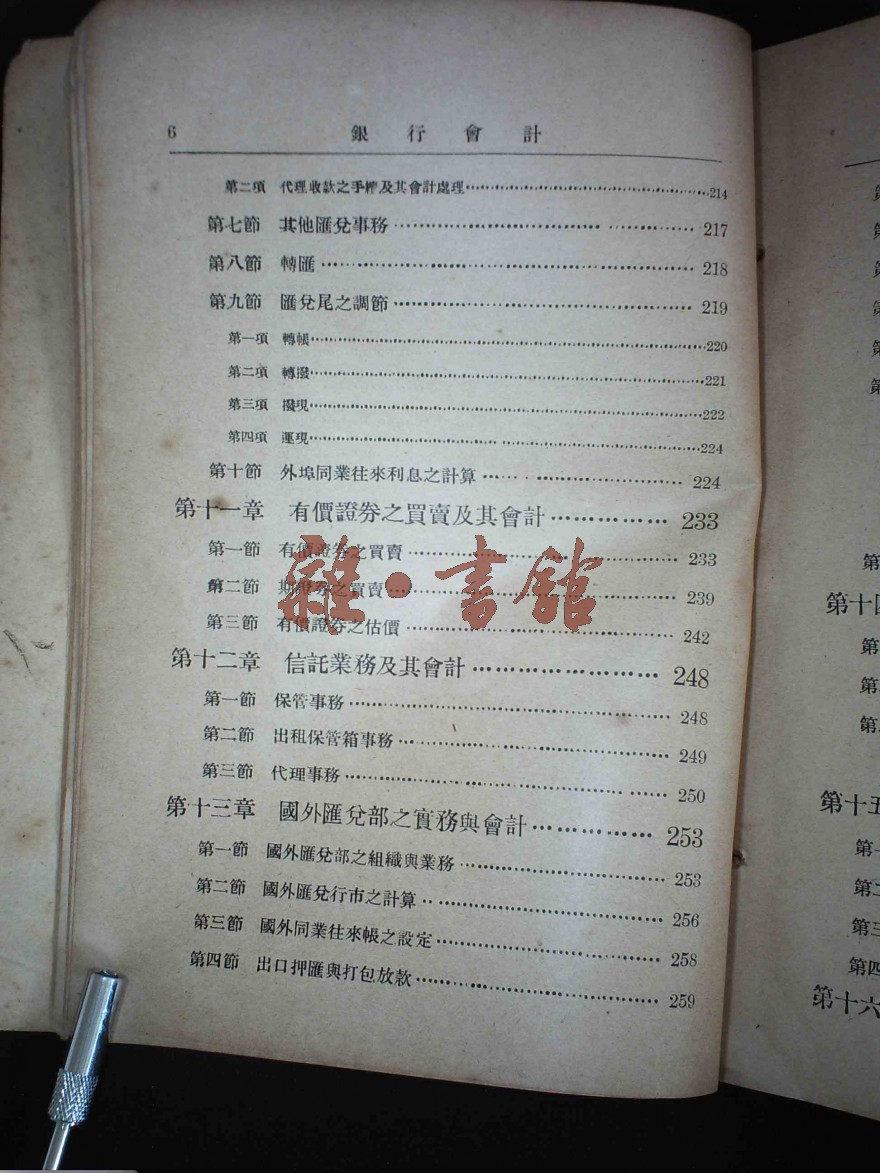 6 銀行會計
第二項 代理收款之手續及其會計處理 214
第七節 其他匯兌事務 217
第八節 轉匯 218
第九節 匯兌尾之調節 219
第一項 轉帳 220
第二項 轉撥 221
第三項 撥現 222
第四項 運現 224
第十節 外埠同業往來利息之計算 224
第十一章 有價證券之買賣及其會計 233
第一節 有價證券之買賣 233
第二節 期證券之買賣 239
第三節 有價證券之估價 242
第十二章 信託業務及其會計 248
第一節 保管事務 248
第二節 出租保管箱事務 249
第三節 代理事務 250
第十三章 國外匯兌部之實務與會計 253
第一節 國外匯兌部之組織與業務 253
第二節 國外匯兌行市之計算 256
第三節 國外同業往來帳之設定 258
第四節 出口押匯與打包放款 259
雜·書館
第十四
第
第
第
第十五
第一
第二
第三
第四
第十六